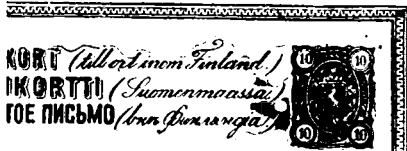 KORT (till ort inom Finland.)
IKORTTI (Suomenmaassa)
ТОЕ ПИСЬМО (внѣ Финляндіи)
10 10
10 10